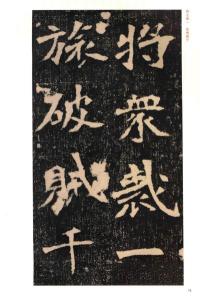 將衆裁一
旅破賊千